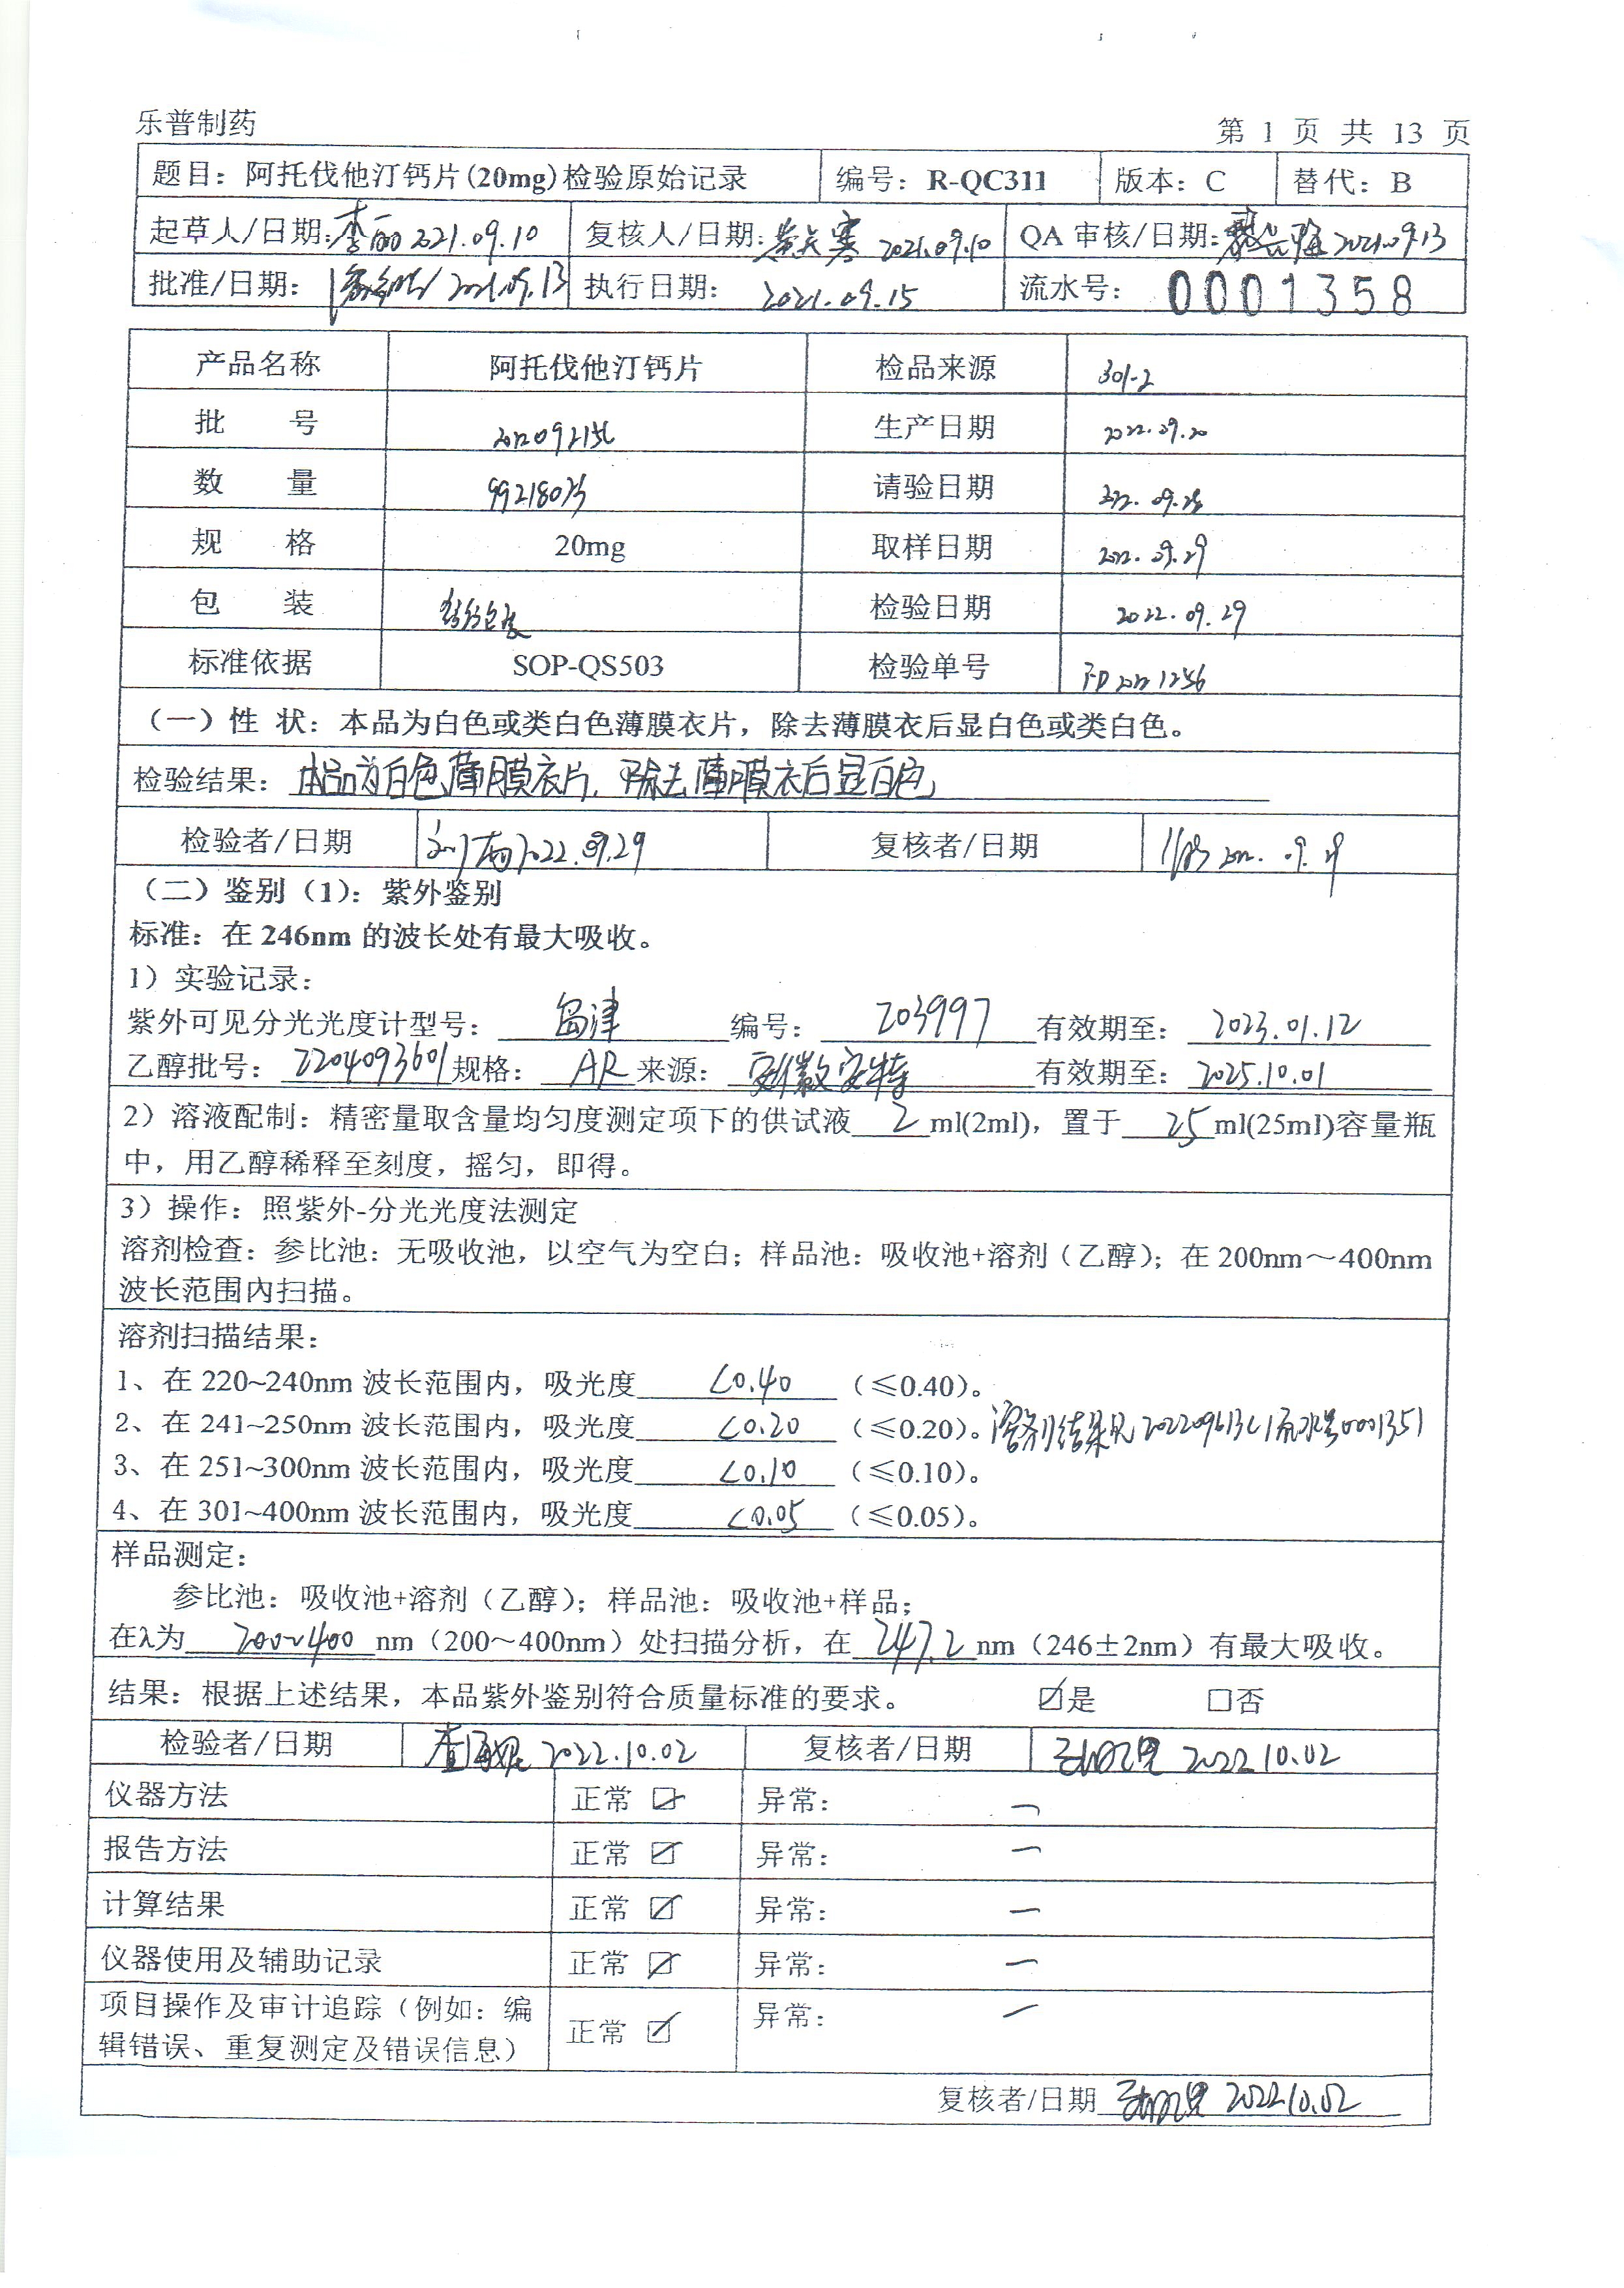 乐普制药
第 1 页 共 13 页
题目：阿托伐他汀钙片(20mg)检验原始记录 编号：R-QC311 版本：C 替代：B
起草人/日期： 2021.09.10 复核人/日期： 2021.09.10 QA 审核/日期： 2021.09.13
批准/日期： 2021.09.13 执行日期： 2021.09.15 流水号： 0001358
产品名称 阿托伐他汀钙片 检品来源 301-2
批 号 生产日期 2022.09.20
数 量 请验日期
规 格 20mg 取样日期 2022.09.29
包 装 检验日期 2022.09.29
标准依据 SOP-QS503 检验单号
（一）性 状：本品为白色或类白色薄膜衣片，除去薄膜衣后显白色或类白色。
检验结果：本品为白色薄膜衣片，除去薄膜衣后显白色
检验者/日期 2022.09.29 复核者/日期 2022.09.29
（二）鉴别（1）：紫外鉴别
标准：在 246nm 的波长处有最大吸收。
1）实验记录：
紫外可见分光光度计型号： 岛津 编号： Z03997 有效期至： 2023.01.12
乙醇批号： 2204093601 规格： AR 来源： 安徽安特 有效期至： 2025.10.01
2）溶液配制：精密量取含量均匀度测定项下的供试液 2 ml(2ml)，置于 25 ml(25ml)容量瓶
中，用乙醇稀释至刻度，摇匀，即得。
3）操作：照紫外-分光光度法测定
溶剂检查：参比池：无吸收池，以空气为空白；样品池：吸收池+溶剂（乙醇）；在 200nm～400nm
波长范围内扫描。
溶剂扫描结果：
1、在 220~240nm 波长范围内，吸光度 <0.40 （≤0.40）。
2、在 241~250nm 波长范围内，吸光度 <0.20 （≤0.20）。溶剂结果见 流水号0001351
3、在 251~300nm 波长范围内，吸光度 <0.10 （≤0.10）。
4、在 301~400nm 波长范围内，吸光度 <0.05 （≤0.05）。
样品测定：
参比池：吸收池+溶剂（乙醇）；样品池：吸收池+样品；
在λ为 200~400 nm（200～400nm）处扫描分析，在 247.2 nm（246±2nm）有最大吸收。
结果：根据上述结果，本品紫外鉴别符合质量标准的要求。 ☑是 □否
检验者/日期 2022.10.02 复核者/日期 2022.10.02
仪器方法 正常 ☑ 异常： —
报告方法 正常 ☑ 异常： —
计算结果 正常 ☑ 异常： —
仪器使用及辅助记录 正常 ☑ 异常： —
项目操作及审计追踪（例如：编 正常 ☑ 异常： —
辑错误、重复测定及错误信息）
复核者/日期 2022.10.02